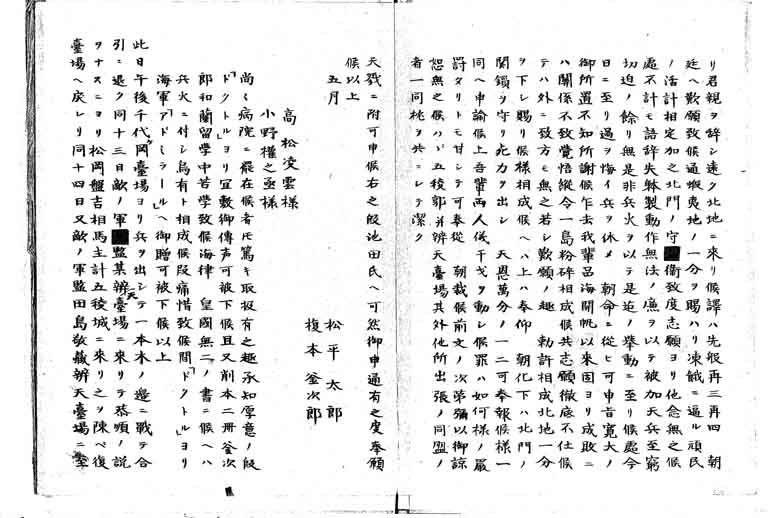 リ君親ヲ辞シ遠ク北地ニ来リ候譯ハ先般再三再四　朝
廷ヘ歎願致候通蝦夷地ノ一分ヲ賜ハリ凍餓ニ逼ル頑民
ノ活計相定加之北門ノ守衛致度志願ヨリ他念無之候
處不計モ語辞失躰製動作無法ノ廉ヲ以テ被加天兵至窮
切迫ノ餘リ無是非兵火ヲ以テ是迄ノ挙動ニ至リ候處今
日ニ至リ過ヲ悔イ兵ヲ休メ　朝命ニ從ヒ可申旨寛大ノ
御所置不知所謝候乍去我輩品海開帆以来固ヨリ成敗ニ
ハ關係不致覚悟縦令一島粉砕相成候共志願徹底不仕候
テハ外ニ致方モ無之若シ歎願ノ趣　勅許相成北地一分
ヲ下シ賜リ候様相成候ヘハ上ハ奉仰　朝化下ハ北門ノ
関鎖ヲ守リ死力ヲ出シ　天恩萬分ノ一ニ可奉報候様一
同ヘ申諭候上吾輩両人儀干戈ヲ動シ候罪ハ如何様ノ嚴
罸タリトモ甘シテ可奉從　朝裁候前文ノ次第彌以御諒
恕無之候ハヾ五稜郭并辨天臺場其外他所出張ノ同盟ノ
者一同桃ヲ共ニシテ潔ク
天戮ニ附可申候右之段池田氏ヘ可然御申通有之度奉願
候以上
五月
松平太郎
榎本釜次郎
高松凌雲様
小野權之丞様
尚々病院ニ罷在候者モ篤キ取扱有之趣承知厚意ノ段
「ドクトル」ヨリ宜敷御傳声可被下候且又削本二冊釜次
郎和蘭留学中苦学致候海律　皇國無二ノ書ニ候ヘハ
兵火ニ付シ烏有ト相成候段痛惜致候間「ドクトル」ヨリ
海軍「アドミラール」ヘ御贈可被下候以上
此日午後千代ヶ岡臺場ヨリ兵ヲ出シテ一本木ノ邊ニ戰テ合
引ニ退ク同十三日敵ノ軍監某辨天臺場ニ来リテ恭順ノ説
ヲナスニヨリ松岡盤吉相馬主計五稜城ニ来リ之ヲ陳ベ復
臺場ヘ戻レリ同十四日又敵ノ軍監田島敬藏辨天臺場ニ至